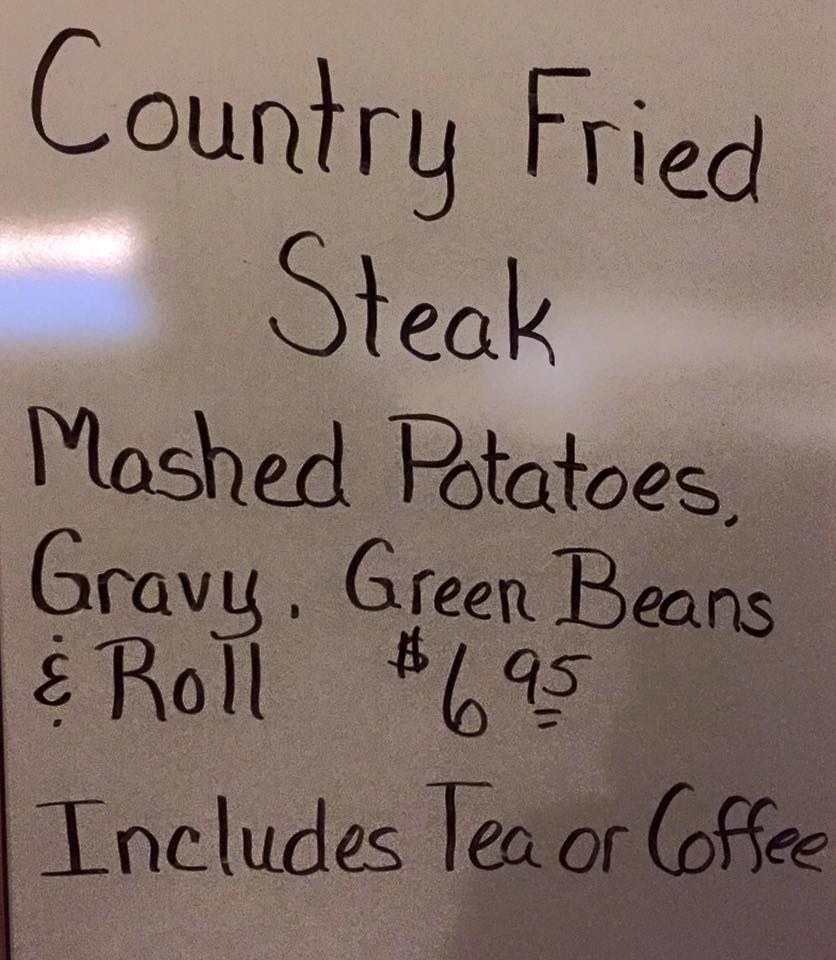 Country Fried
Steak
Mashed Potatoes,
Gravy, Green Beans
& Roll $6 95
Includes Tea or Coffee